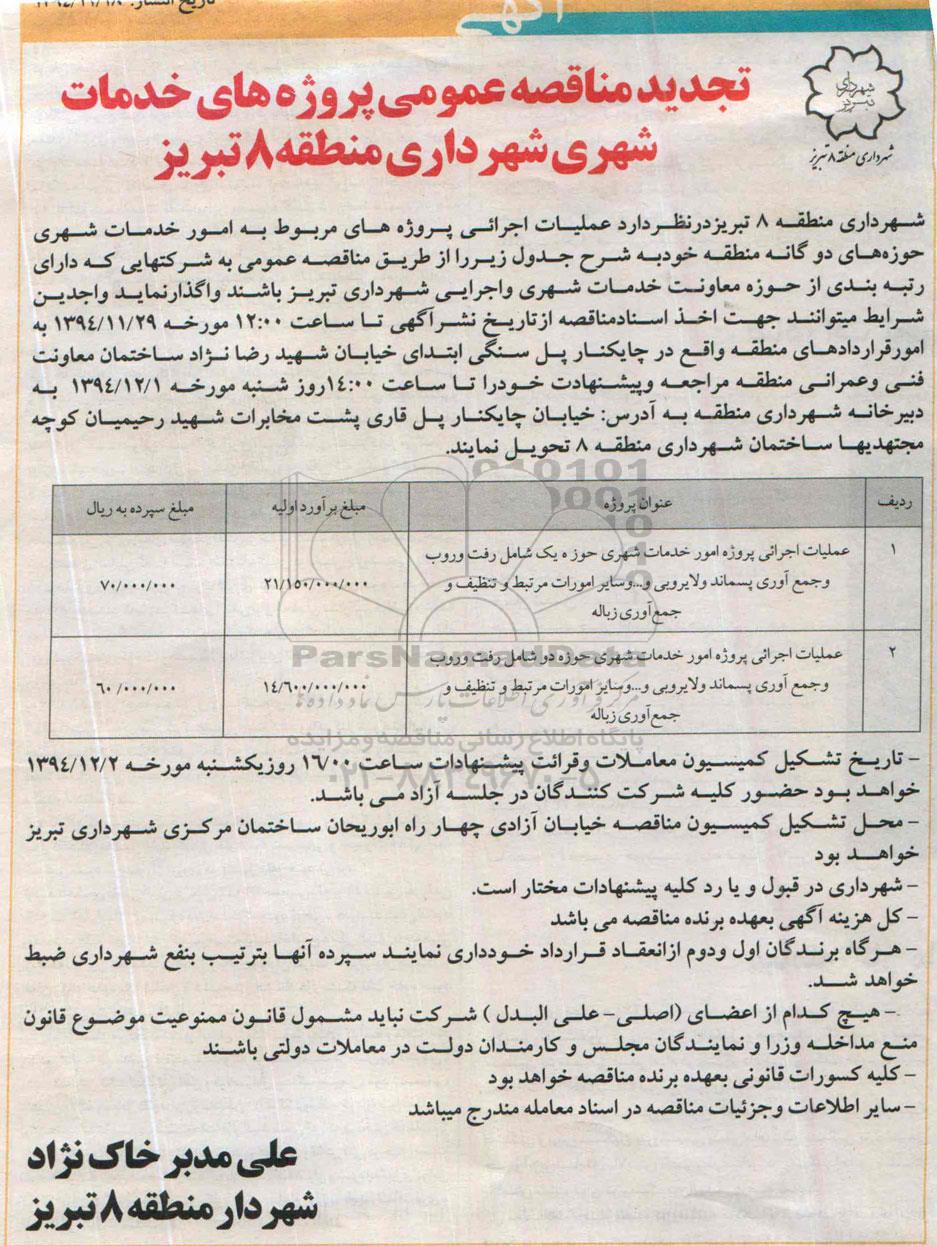 تاریخ انتشار: ۱۳۹٤/۱۱/۱۸
آگهی
شهرداری تبریز
شهرداری منطقه ۸ تبریز
تجدید مناقصه عمومی پروژه های خدمات
شهری شهرداری منطقه ۸ تبریز
شهرداری منطقه ۸ تبریزدرنظردارد عملیات اجرائی پروژه های مربوط به امور خدمات شهری
حوزه‌های دو گانه منطقه خودبه شرح جدول زیررا از طریق مناقصه عمومی به شرکتهایی که دارای
رتبه بندی از حوزه معاونت خدمات شهری واجرایی شهرداری تبریز باشند واگذارنماید واجدین
شرایط میتوانند جهت اخذ اسنادمناقصه ازتاریخ نشرآگهی تا ساعت ۱۲:۰۰ مورخه ۱۳۹٤/۱۱/۲۹ به
امورقراردادهای منطقه واقع در چایکنار پل سنگی ابتدای خیابان شهید رضا نژاد ساختمان معاونت
فنی وعمرانی منطقه مراجعه وپیشنهادت خودرا تا ساعت ۱٤:۰۰روز شنبه مورخه ۱۳۹٤/۱۲/۱ به
دبیرخانه شهرداری منطقه به آدرس: خیابان چایکنار پل قاری پشت مخابرات شهید رحیمیان کوچه
مجتهدیها ساختمان شهرداری منطقه ۸ تحویل نمایند.
ردیف عنوان پروژه مبلغ برآورد اولیه مبلغ سپرده به ریال
۱ عملیات اجرائی پروژه امور خدمات شهری حوزه یک شامل رفت وروب
وجمع آوری پسماند ولایروبی و...وسایر امورات مرتبط و تنظیف و ۲۱/۱۵۰/۰۰۰/۰۰۰ ۷۰/۰۰۰/۰۰۰
جمع‌آوری زباله
۲ عملیات اجرائی پروژه امور خدمات شهری حوزه دو شامل رفت وروب
وجمع آوری پسماند ولایروبی و...وسایر امورات مرتبط و تنظیف و ۱٤/٦۰۰/۰۰۰/۰۰۰ ٦۰/۰۰۰/۰۰۰
جمع‌آوری زباله
ParsNamadData
مرکز فرآوری اطلاعات پارس نماد داده‌ها
پایگاه اطلاع رسانی مناقصه و مزایده
۰۲۱-۸۸۳۴۹۶۷۰-۵
- تاریخ تشکیل کمیسیون معاملات وقرائت پیشنهادات ساعت ۱٦/۰۰ روزیکشنبه مورخه ۱۳۹٤/۱۲/۲
خواهد بود حضور کلیه شرکت کنندگان در جلسه آزاد می باشد.
- محل تشکیل کمیسیون مناقصه خیابان آزادی چهار راه ابوریحان ساختمان مرکزی شهرداری تبریز
خواهد بود
- شهرداری در قبول و یا رد کلیه پیشنهادات مختار است.
- کل هزینه آگهی بعهده برنده مناقصه می باشد
- هرگاه برندگان اول ودوم ازانعقاد قرارداد خودداری نمایند سپرده آنها بترتیب بنفع شهرداری ضبط
خواهد شد.
- هیچ کدام از اعضای (اصلی- علی البدل ) شرکت نباید مشمول قانون ممنوعیت موضوع قانون
منع مداخله وزرا و نمایندگان مجلس و کارمندان دولت در معاملات دولتی باشند
- کلیه کسورات قانونی بعهده برنده مناقصه خواهد بود
- سایر اطلاعات وجزئیات مناقصه در اسناد معامله مندرج میباشد
علی مدبر خاک نژاد
شهردار منطقه ۸ تبریز